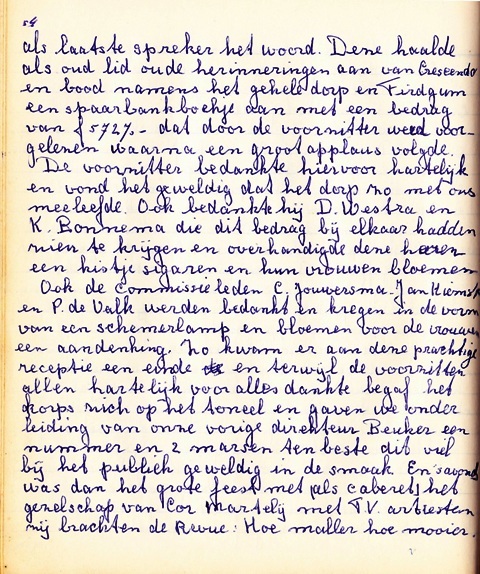 54
als laatste spreker het woord. Dene haalde
als oud lid oude herinneringen aan van Crescendo
en bood namens het gehele dorp en Firdgum
een spaarbankboekje aan met een bedrag
van f 5727,- dat door de voorzitter werd voor-
gelezen waarna een groot applaus volgde.
De voorzitter bedankte hiervoor hartelijk
en vond het geweldig dat het dorp zo met ons
meeleefde. Ook bedankte hij D. Westra en
K. Bonnema die dit bedrag bij elkaar hadden
zien te krijgen en overhandigde deze heren
een kistje sigaren en hun vrouwen bloemen
Ook de Commissie leden C. Jouwersma. Jan Hiemstr
en P. de Valk werden bedankt en kregen in de vorm
van een schemerlamp en bloemen voor de vrouwen
een aandenking. Zo kwam er aan deze prachtige
receptie een einde en terwijl de voorzitter
allen hartelijk voor alles dankte begaf het
korps zich op het toneel en gaven we onder
leiding van onze vorige direkteur Beuker een
nummer en 2 marsen ten beste dit viel
bij het publiek geweldig in de smaak En savonds
was dan het grote feest met (als caberet) het
gezelschap van Cor Martelij met T.V. artiesten
zij brachten de Revue: Hoe maller hoe mooier.